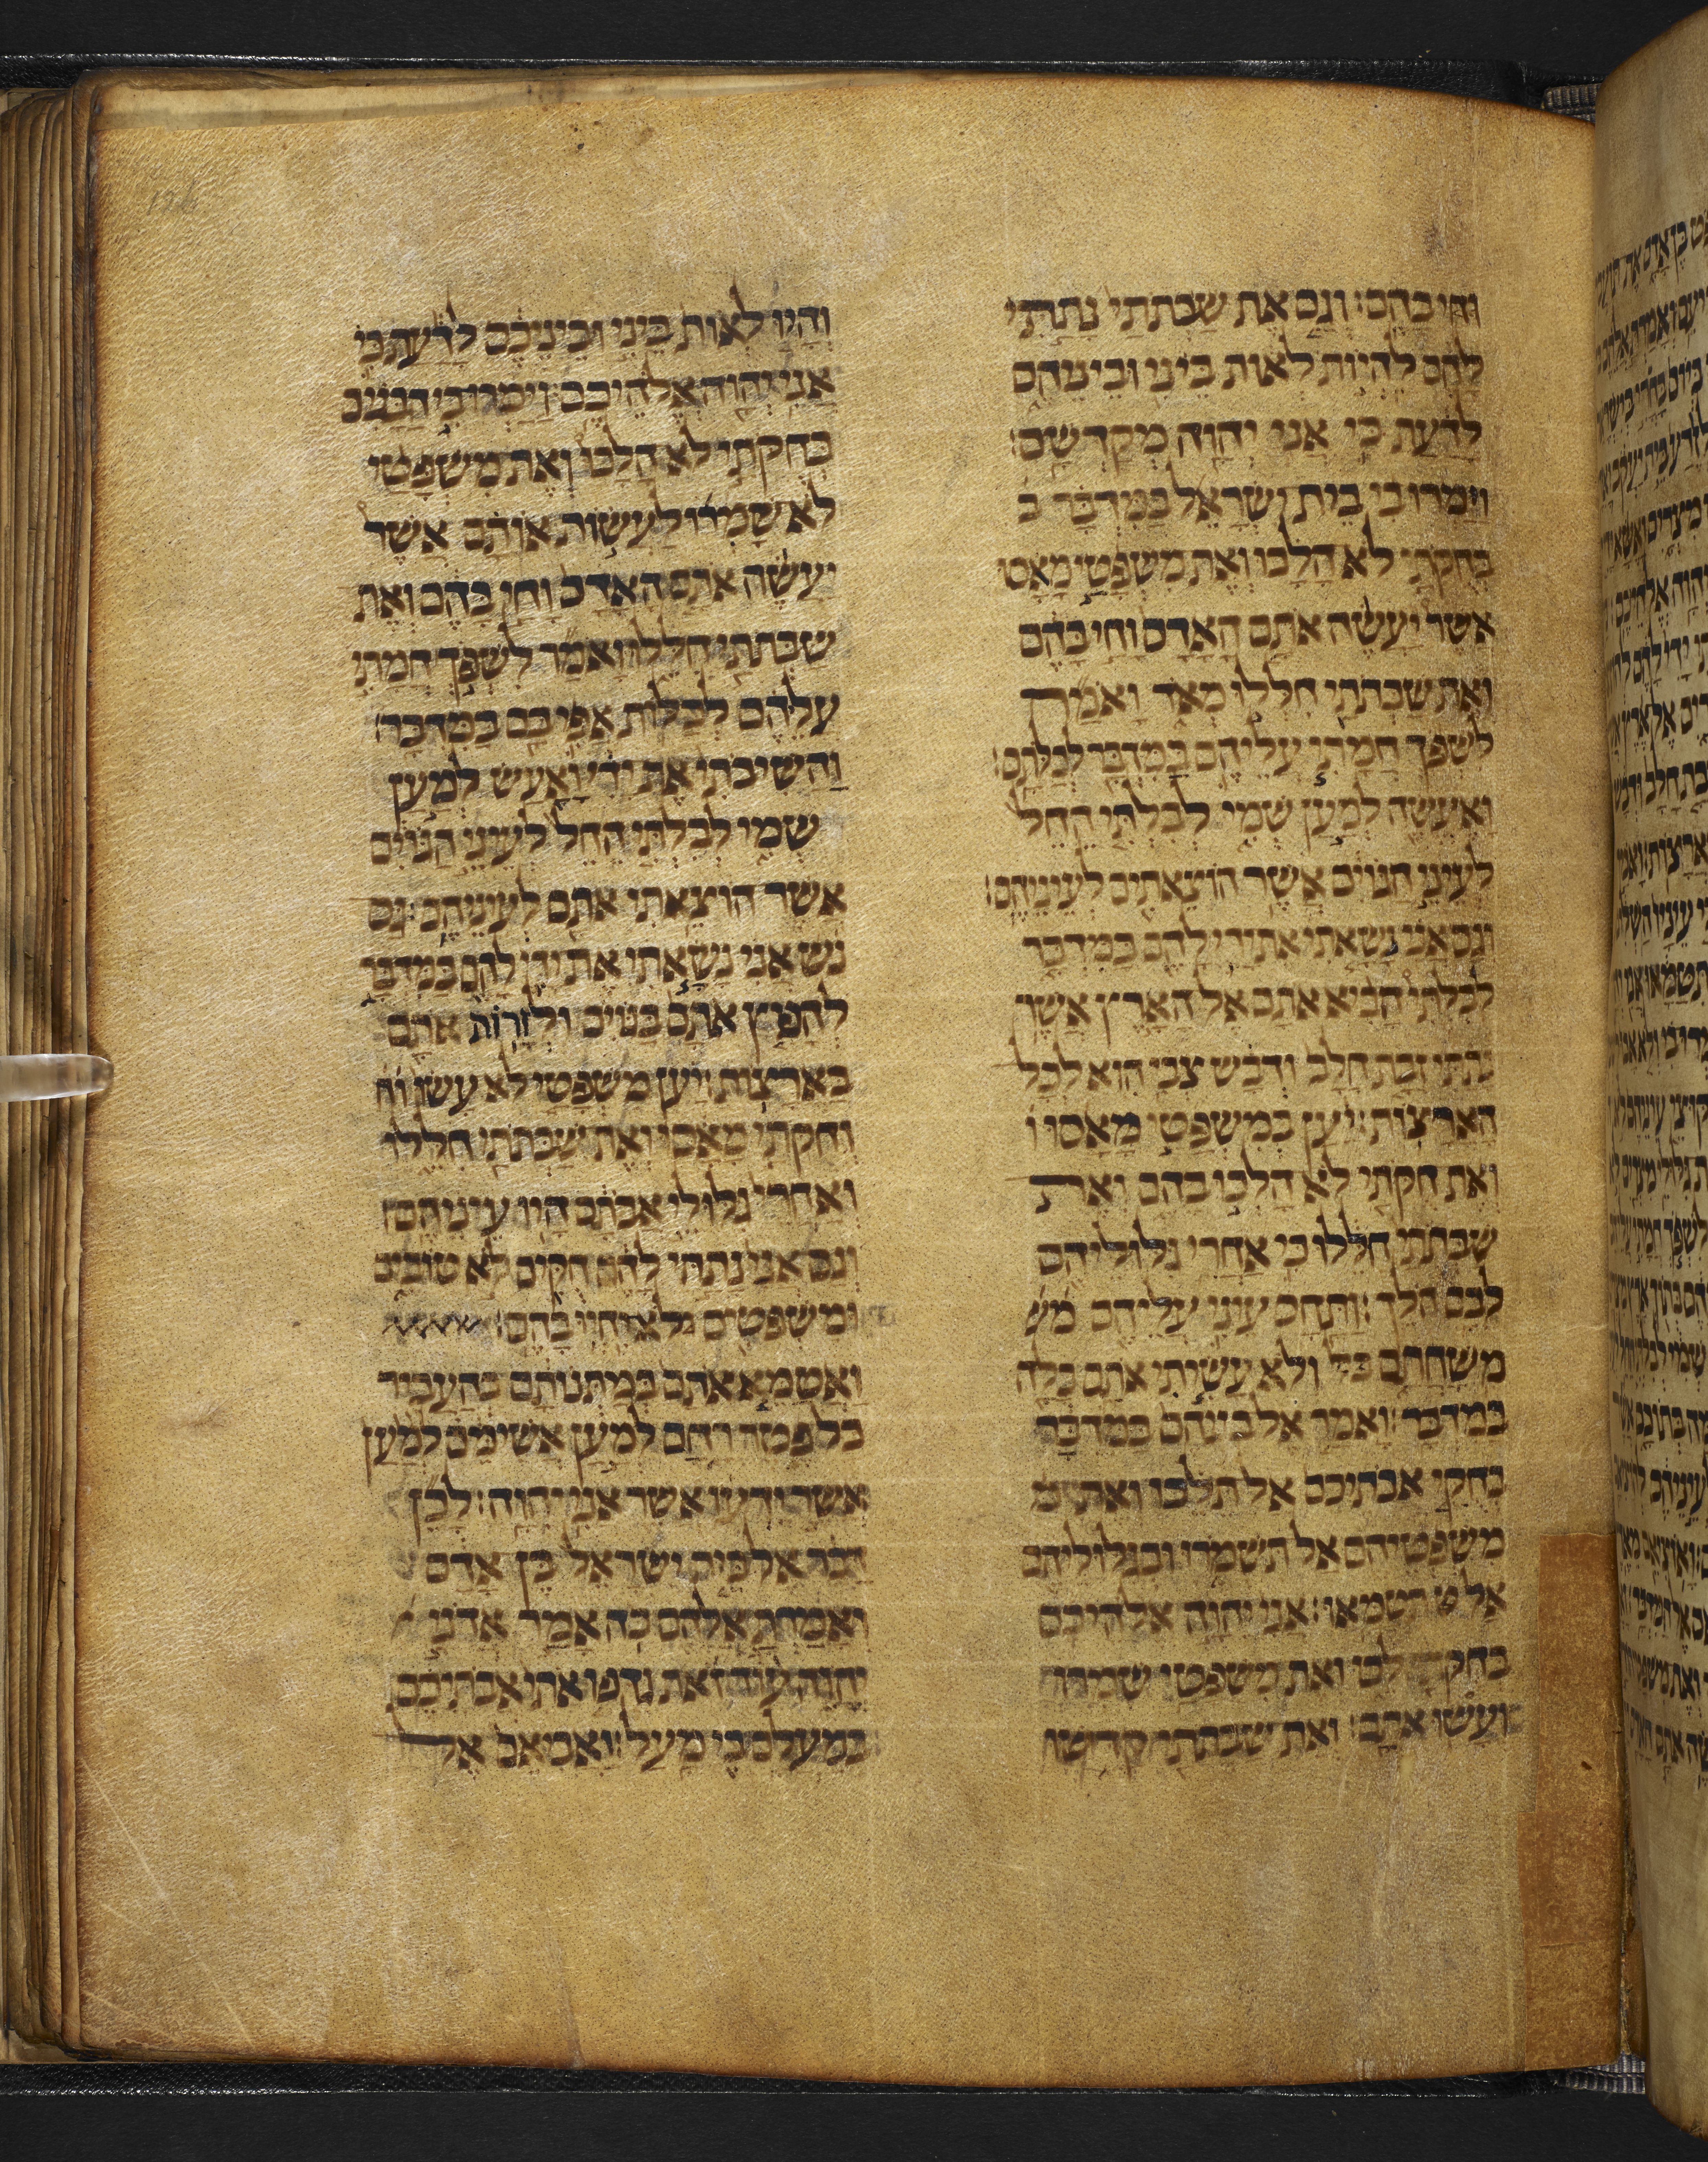 וחי בהם: וגם את שבתתי נתתי
להם להיות לאות ביני וביניהם
לדעת כי אני יהוה מקדשם:
וימרו בי בית ישראל במדבר ב
בחקתי לא הלכו ואת משפטי מאסו
אשר יעשה אתם האדם וחי בהם
ואת שבתתי חללו מאד ואמר
לשפך חמתי עליהם במדבר לכלתם:
ואעשה למען שמי לבלתי החל
לעיני הגוים אשר הוצאתים לעיניהם:
וגם אני נשאתי את ידי להם במדבר
לבלתי הביא אתם אל הארץ אשר
נתתי זבת חלב ודבש צבי היא לכל
הארצות: יען במשפטי מאסו ו
ואת חקתי לא הלכו בהם ואת
שבתתי חללו כי אחרי גלוליהם
לבם הלך: ותחס עיני עליהם מש
משחתם ולא עשיתי אתם כלה
במדבר: ואמר אל בניהם במדבר
בחקי אבתיכם אל תלכו ואת מ
משפטיהם אל תשמרו ובגלוליהם
אל תטמאו: אני יהוה אלהיכם
בחקתי לכו ואת משפטי שמרו
ועשו אתם: ואת שבתתי קדשו
והיו לאות ביני וביניכם לדעת כי
אני יהוה אלהיכם: וימרו בי הבנים
בחקתי לא הלכו ואת משפטי
לא שמרו לעשות אותם אשר
יעשה אתם האדם וחי בהם ואת
שבתתי חללו ואמר לשפך חמתי
עליהם לכלות אפי בם במדבר:
והשיבתי את ידי ואעש למען
שמי לבלתי החל לעיני הגוים
אשר הוצאתי אתם לעיניהם: גם
נש אני נשאתי את ידי להם במדבר
להפיץ אתם בגוים ולזרות אתם
בארצות: יען משפטי לא עשו וח
וחקתי מאסו ואת שבתתי חללו
ואחרי גלולי אבתם היו עיניהם:
וגם אני נתתי להם חקים לא טובים
ומשפטים לא יחיו בהם:
ואטמא אתם במתנותם בהעביר
כל פטר רחם למען אשימם למען
אשר ידעו אשר אני יהוה: לכן
דבר אל בית ישראל בן אדם
ואמרת אליהם כה אמר אדני
יהוה עוד זאת גדפו אותי אבתיכם
במעלם בי מעל: ואביאם אל